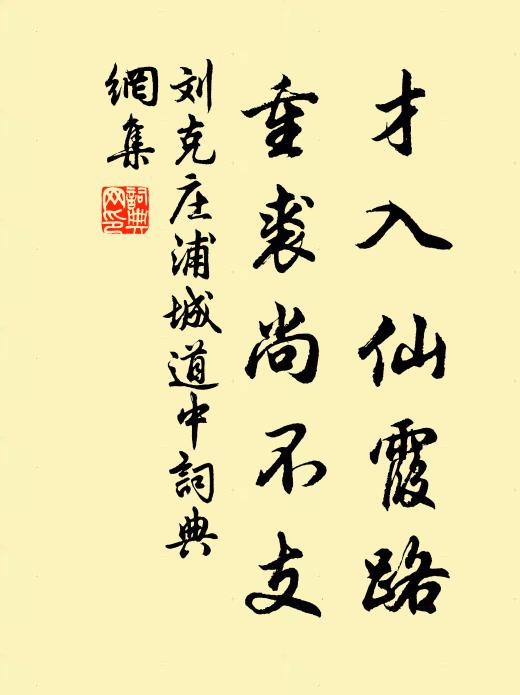 才入仙霞路
重裘尚不支
刘克庄浦城道中詞典
網集
詞典
网印